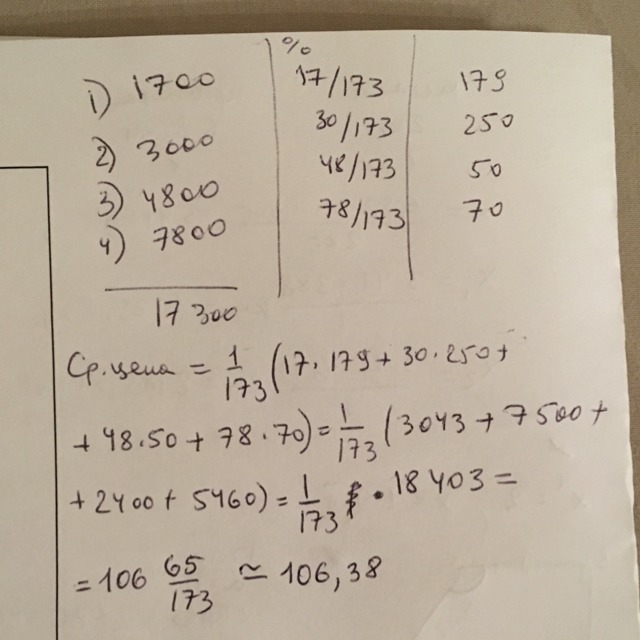 %
1) 1700 17/173 179
2) 3000 30/173 250
3) 4800 48/173 50
4) 7800 78/173 70
17 300
Ср. цена = 1/173 (17·179 + 30·250 +
+ 48·50 + 78·70) = 1/173 (3043 + 7500 +
+ 2400 + 5460) = 1/173 · 18403 =
= 106 65/173 ≃ 106,38